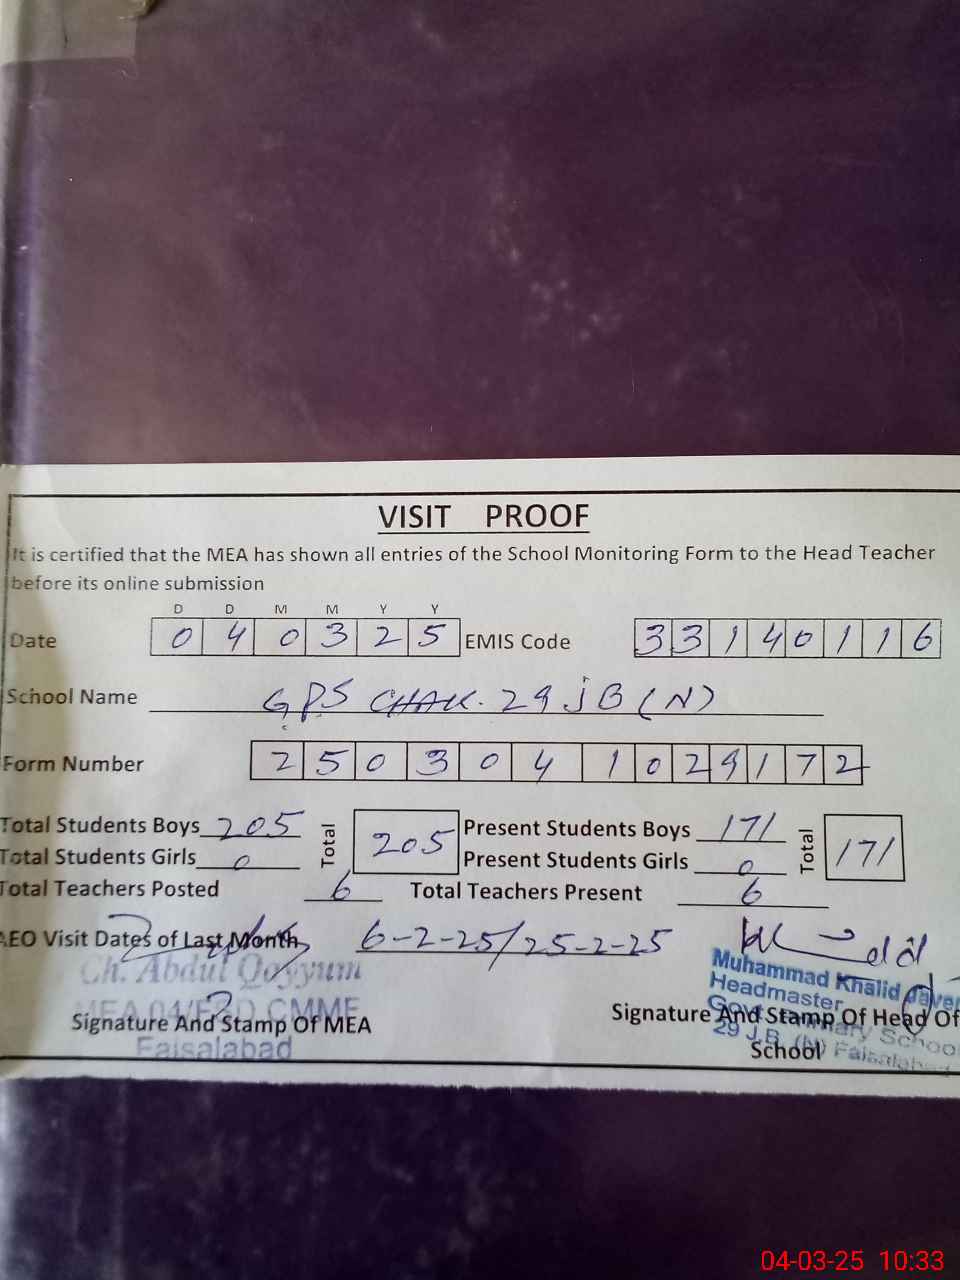 VISIT PROOF
It is certified that the MEA has shown all entries of the School Monitoring Form to the Head Teacher
before its online submission
D D M M Y Y
Date 0 4 0 3 2 5 EMIS Code 3 3 1 4 0 1 1 6
School Name GPS CHAK. 29 JB (N)
Form Number 2 5 0 3 0 4 1 0 2 9 1 7 2
Total Students Boys 205 Total 205 Present Students Boys 171 Total 171
Total Students Girls 0 Present Students Girls 0
Total Teachers Posted 6 Total Teachers Present 6
AEO Visit Dates of Last Month 6-2-25/25-2-25
Ch. Abdul Qayyum
MEA 04/FSD CMME
Faisalabad
Signature And Stamp Of MEA
Muhammad Khalid Javed
Headmaster
Govt Primary School
29 J.B. (N) Faisalabad
Signature And Stamp Of Head Of
School
04-03-25 10:33